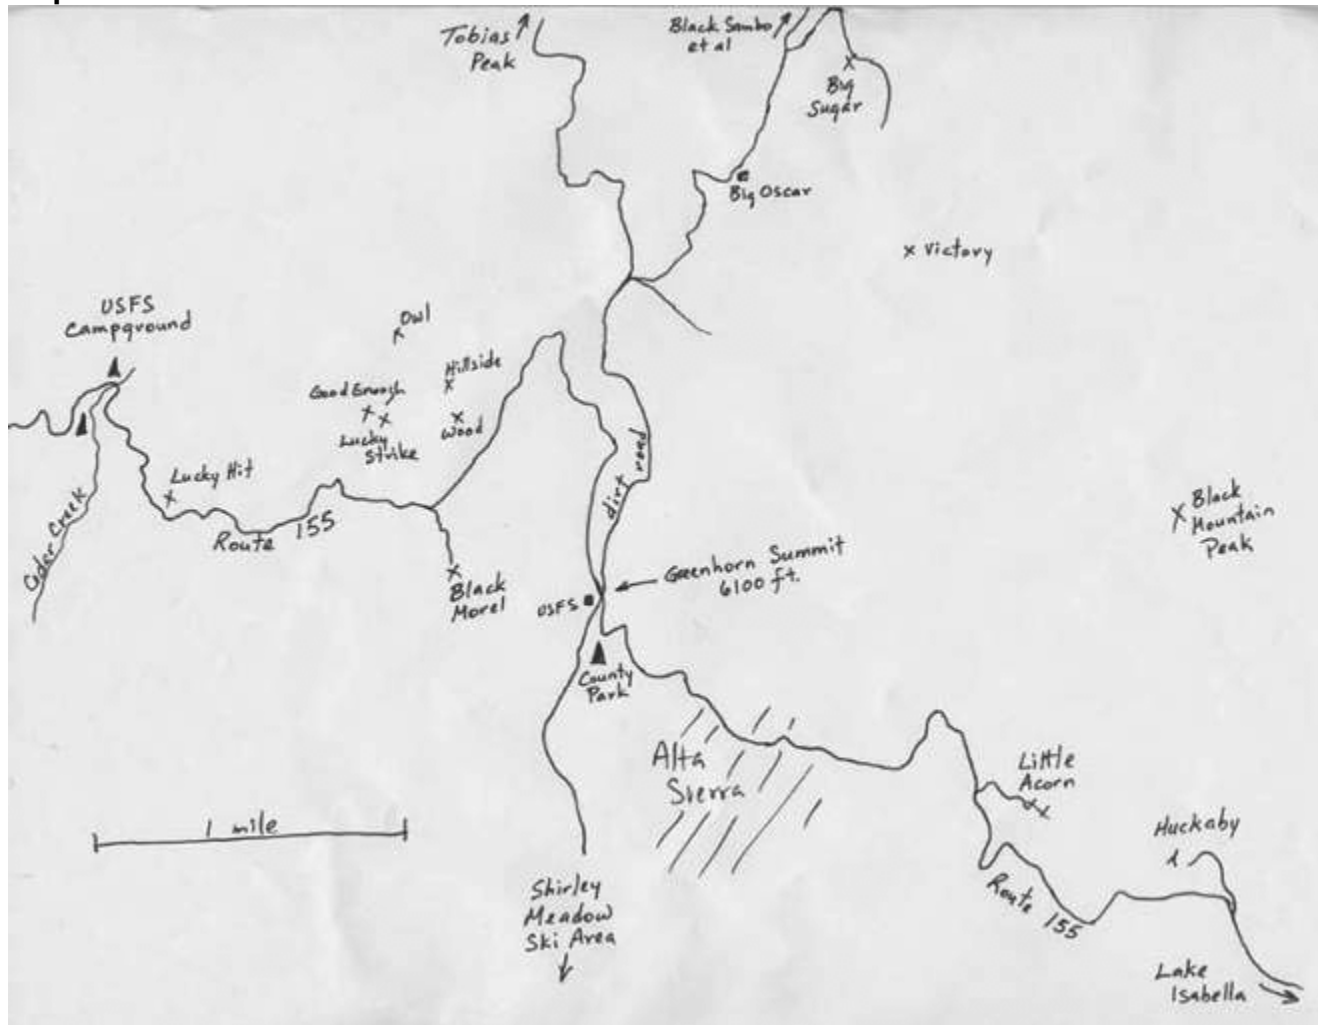 Tobias
Peak
Black Sambo
et al
Big
Sugar
Big Oscar
Victory
USFS
Campground
Owl
Hillside
Good Enough
Lucky
Strike
Wood
Lucky Hit
Cedar Creek
Route 155
Black
Morel
dirt
road
Greenhorn Summit
6100 ft.
USFS
County
Park
Black
Mountain
Peak
Alta
Sierra
Little
Acorn
1 mile
Huckaby
Route 155
Shirley
Meadow
Ski Area
Lake
Isabella